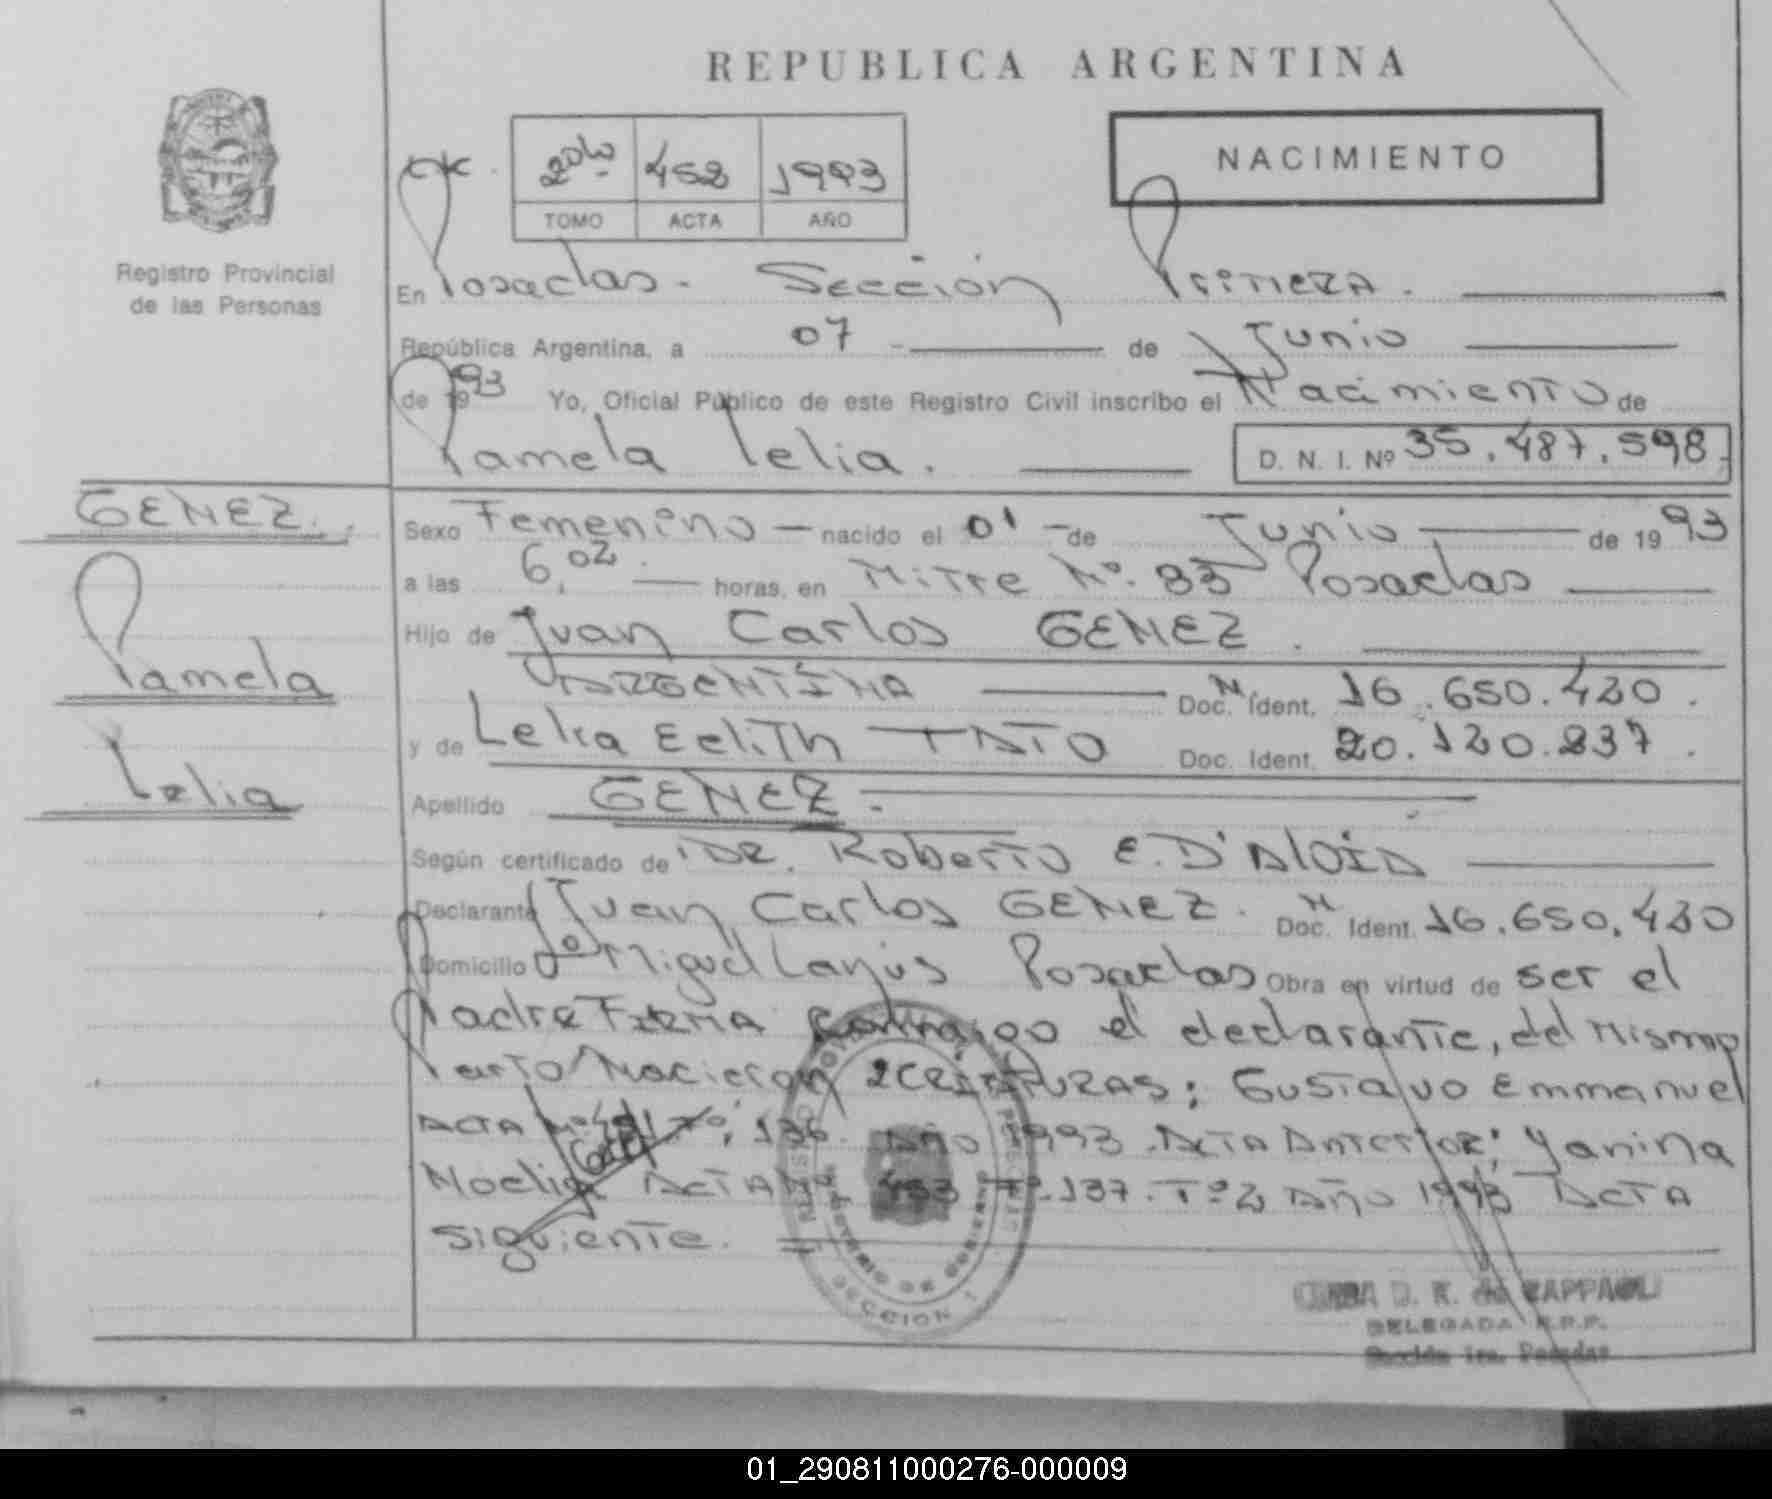 REPUBLICA ARGENTINA
2do 452 1993
TOMO ACTA AÑO
NACIMIENTO
Registro Provincial
de las Personas
En Posadas. Sección Primera.
República Argentina, a 07 de Junio
de 1993 Yo, Oficial Público de este Registro Civil inscribo el Nacimiento de
Pamela Lelia.
D. N. I. Nº 35.487.598.
GENEZ.
Pamela
Lelia
Sexo Femenino - nacido el 01 - de Junio de 1993
a las 6,02 horas, en Mitre Nº. 83 Posadas
Hijo de Juan Carlos GENEZ.
ARGENTINA Doc. Ident. 16.650.420.
y de Lelia Edith TATO Doc. Ident. 20.120.237.
Apellido GENEZ.
Según certificado de DR. Roberto E. D'ALOIA
Declarante Juan Carlos GENEZ. Doc. Ident. 16.650.420
Domicilio Miguel Lanús Posadas Obra en virtud de ser el
Padre Firma conmigo el declarante, del Mismo
Parto Nacieron 2 CRIATURAS: Gustavo Emmanuel
ACTA Nº 451 Fº, 136 Año 1993 ACTA Anterior; Yanina
Noelia ACTA Nº 453 Fº 137. Tº 2 Año 1993 ACTA
Siguiente.
SECCION 1
D. R. de ZAPPAOLI
DELEGADA R.P.P.
Sección 1ra. Posadas
01_290811000276-000009